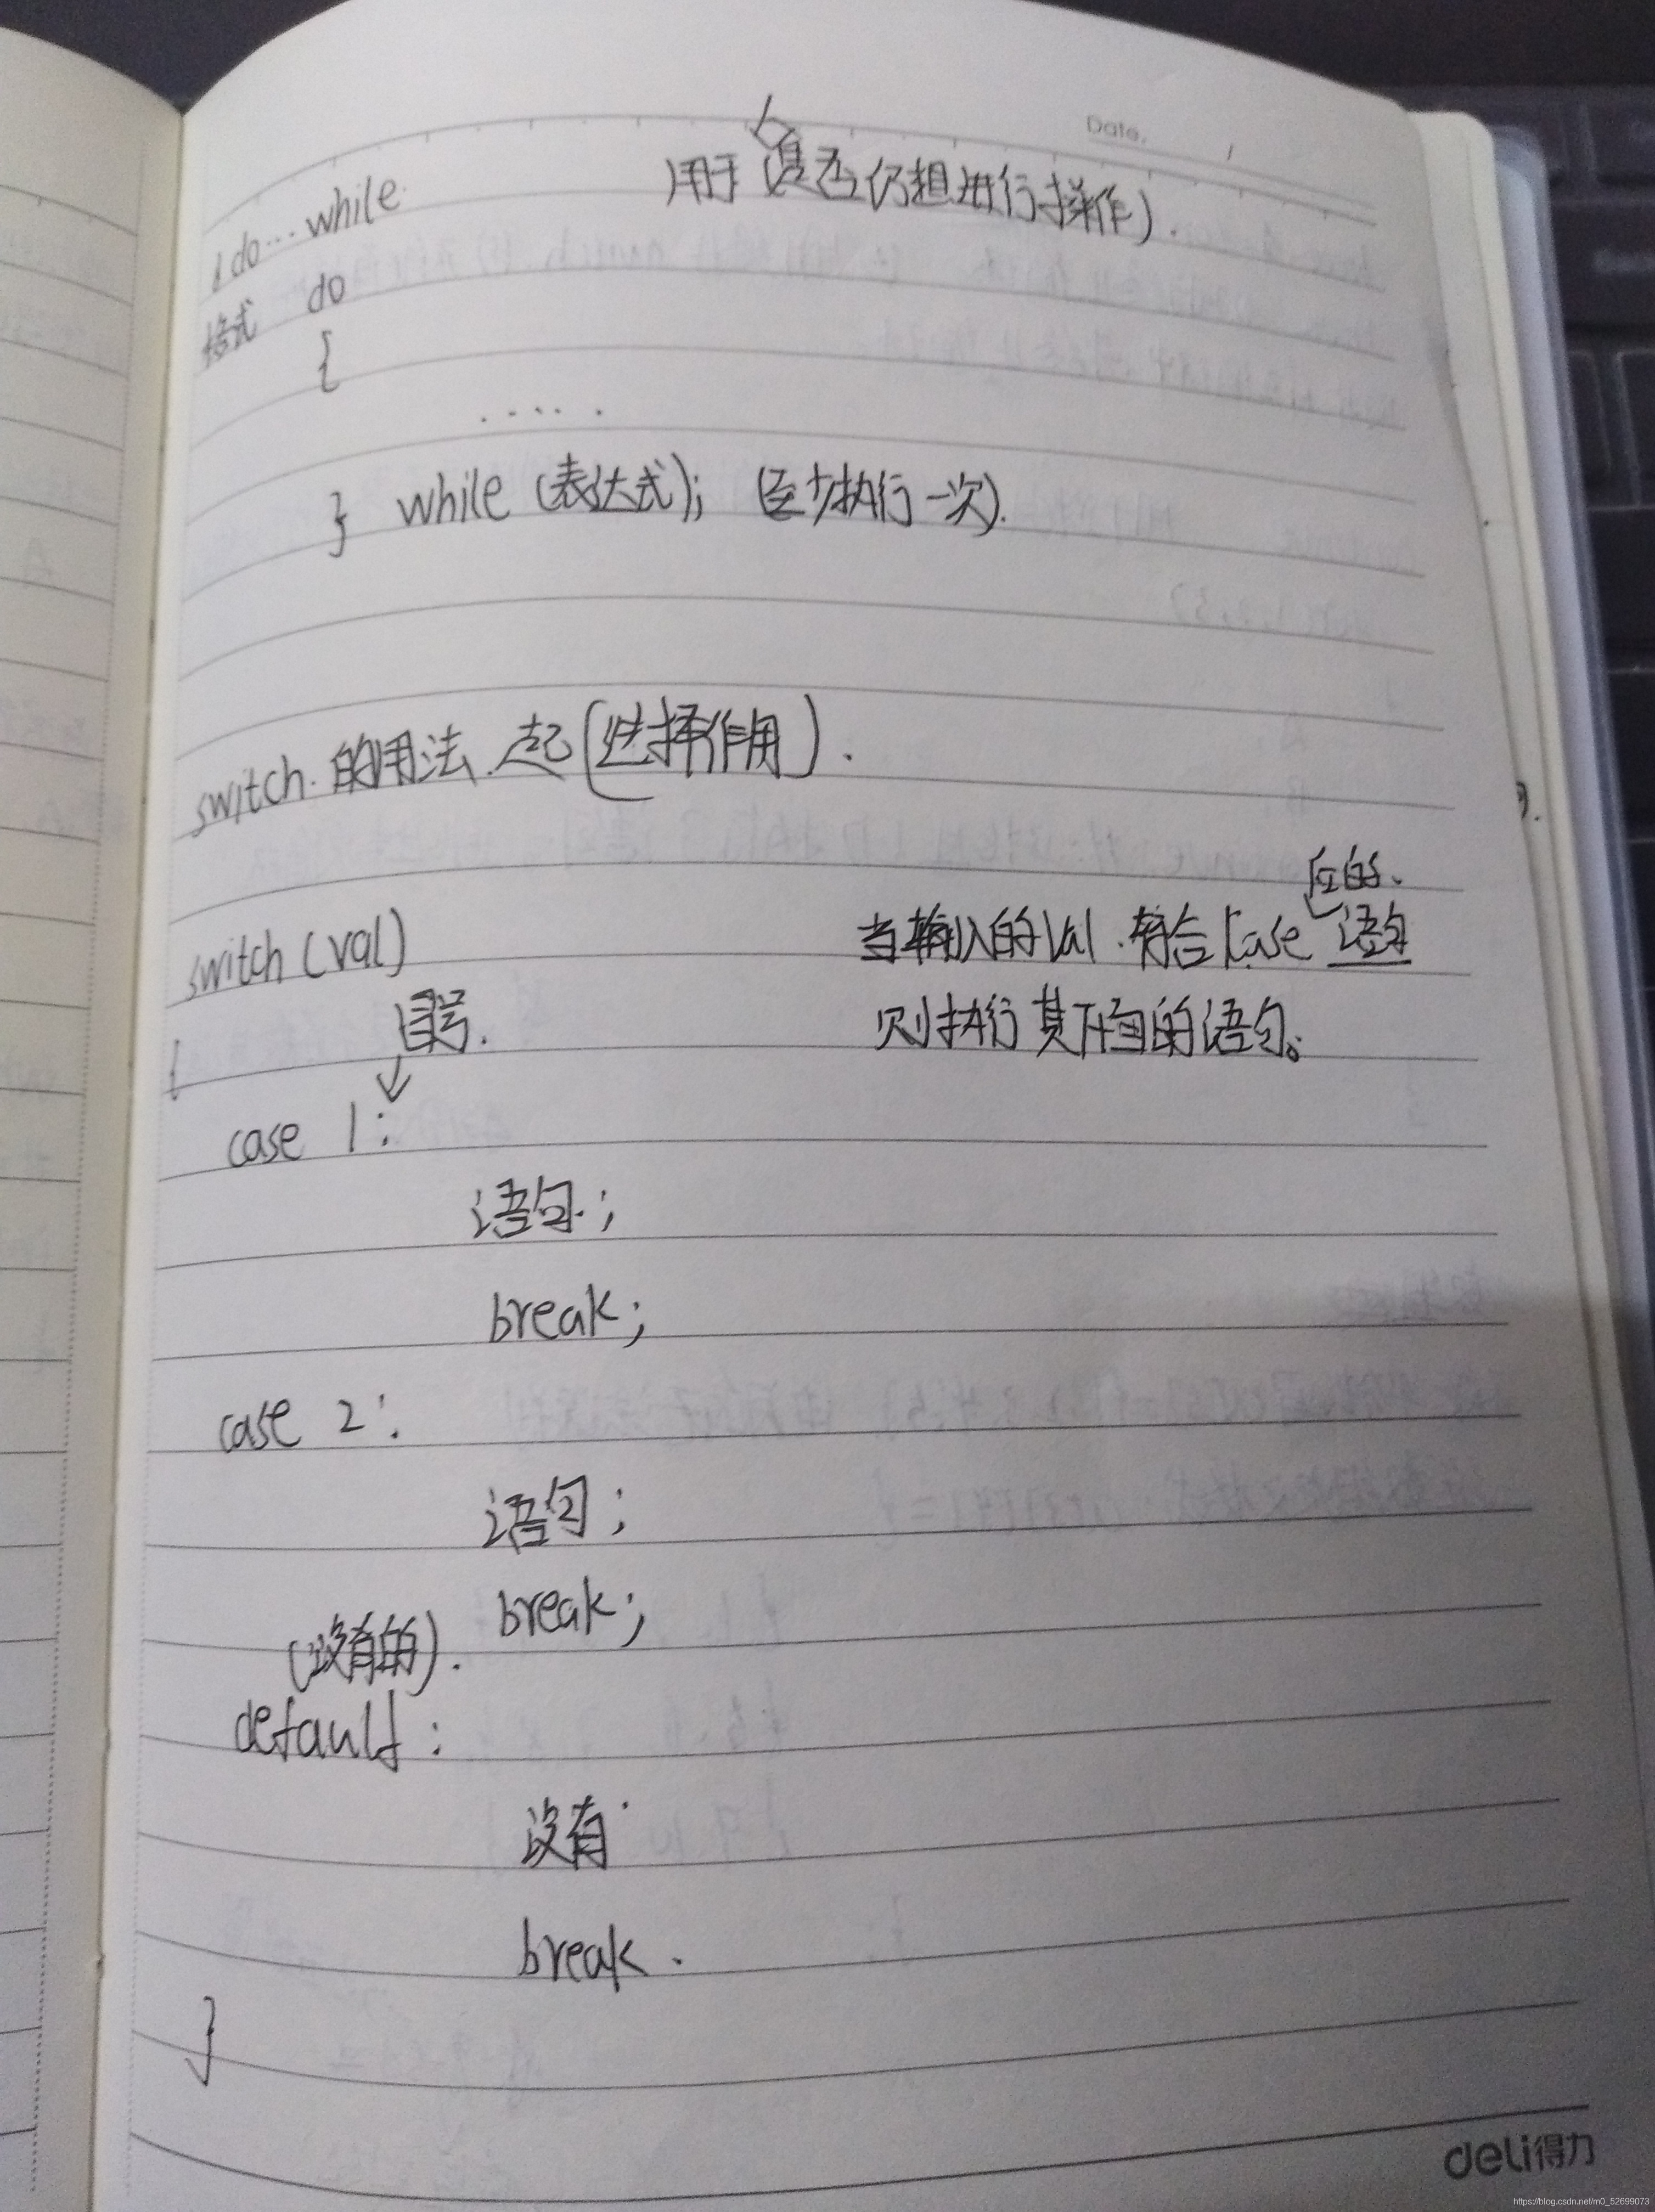 Date.
1 do...while 用于(是否仍想进行操作).
格式 do
{
.....
} while (表达式); (至少执行一次).
switch. 的用法. 起(选择作用).
switch (val) 当输入的val.符合case 应的、语句
则执行其下面的语句。
{
冒号.
case 1:
语句;
break;
case 2:
语句;
break;
(没有的).
default:
没有
break.
}
deli得力
https://blog.csdn.net/m0_52699073